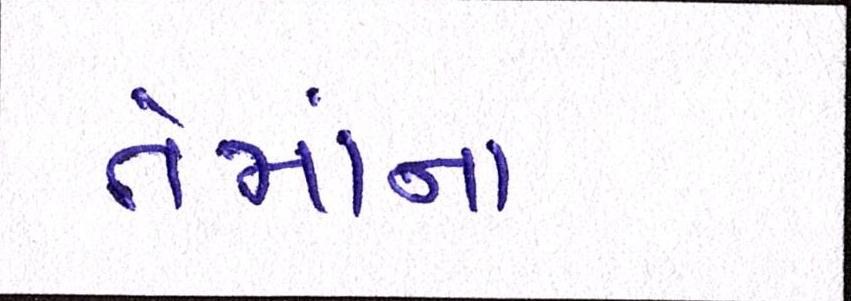 તેમાંના